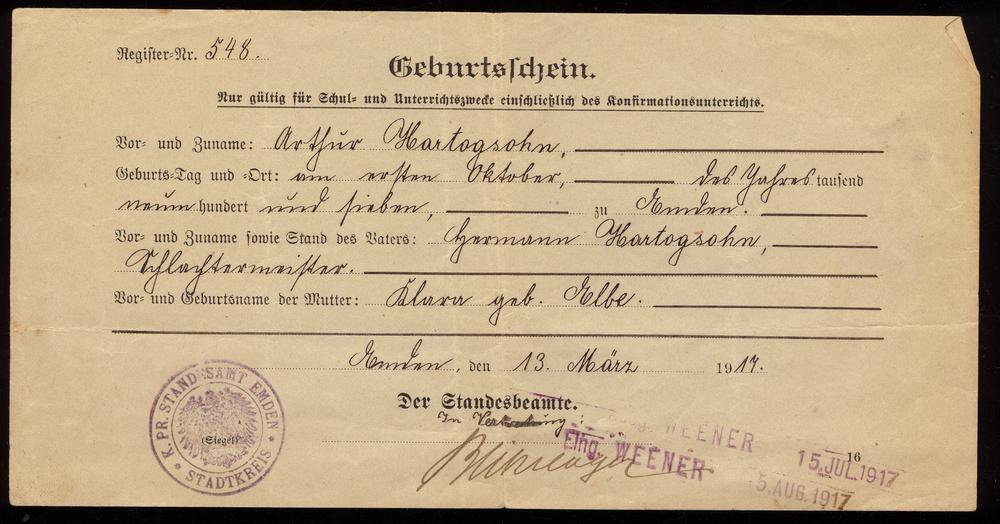 Register-Nr. 548.
Geburtsschein.
Nur gültig für Schul- und Unterrichtszwecke einschließlich des Konfirmationsunterrichts.
Vor- und Zuname: Arthur Hartogsohn,
Geburts-Tag und -Ort: am ersten Oktober, des Jahres tausend
neunhundert und sieben, zu Emden.
Vor- und Zuname sowie Stand des Vaters: Hermann Hartogsohn,
Schlachtermeister.
Vor- und Geburtsname der Mutter: Klara geb. Elbe.
Emden, den 13. März 1917.
Der Standesbeamte.
In Vertretung:
K. PR. STANDESAMT EMDEN
(Siegel)
* STADTKREIS *
WEENER
Eing. WEENER
16
15. JUL. 1917
5. AUG. 1917